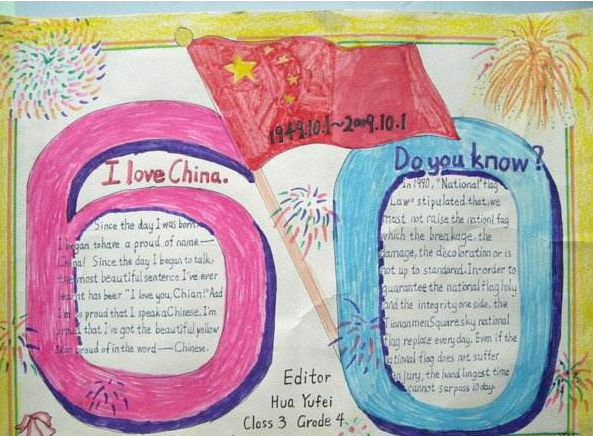 1949.10.1~2009.10.1
I love China.
Since the day I was born
I began to have a proud of name —
China! Since the day I began to talk,
the most beautiful sentence I've ever
learnt has beer "I love you, Chian!" And
I'm so proud that I speak a Chinese. I'm
proud that I've got the beautiful yellow
skin proud of in the word — Chinese.
Do you know?
In 1990, "National flag
Law" stipulated that, we
must not raise the nationl fag
which the breakage, the
damage, the discoloration or is
not up to standared. In order to
guarantee the national flag holy
and the integrity one side, the
TiananmenSquare sky national
flag replace every day. Even if the
national flag does not suffer
injury, the hand longest time
cannot surpass 10 day.
Editor
Hua Yufei
Class 3 Grade 4